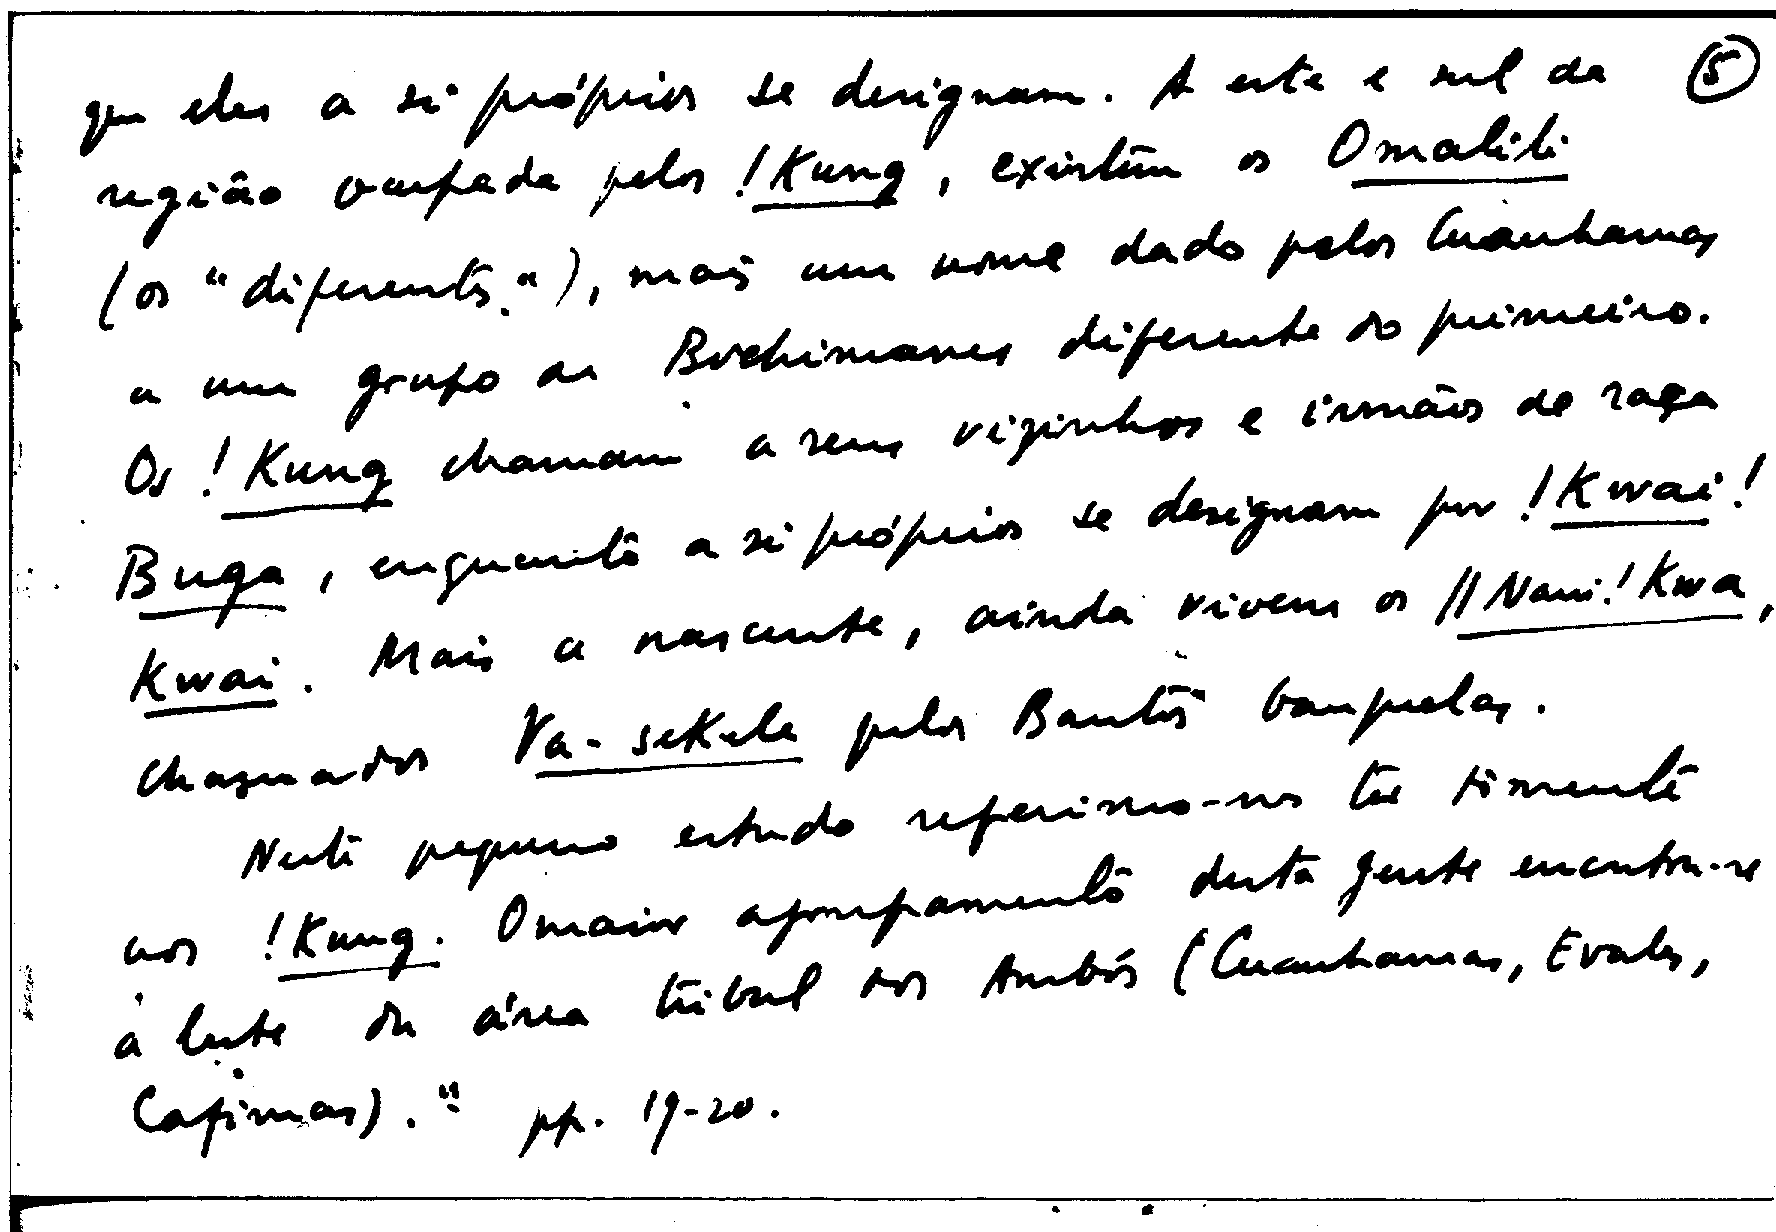 que eles a si próprios se designam. A este e sul da ⑤
região ocupada pelos !Kung, existem os Omaliti
(os "diferentes"), mais um nome dado pelos Cuanhamas
a um grupo de Bochimanes diferente do primeiro.
Os !Kung chamam a seus vizinhos e irmãos de raça
Buga, enquanto a si próprios se designam por !Kwai!
Kwai. Mais a nascente, ainda vivem os //Nani!Kwa,
chamados Va-sekele pelos Bantos Ganguelas.
Neste pequeno estudo referimo-nos tão somente
aos !Kung. O maior agrupamento desta gente encontra-se
a leste da área tribal dos Ambós (Cuanhamas, Evales,
Cafimas)." pp. 19-20.